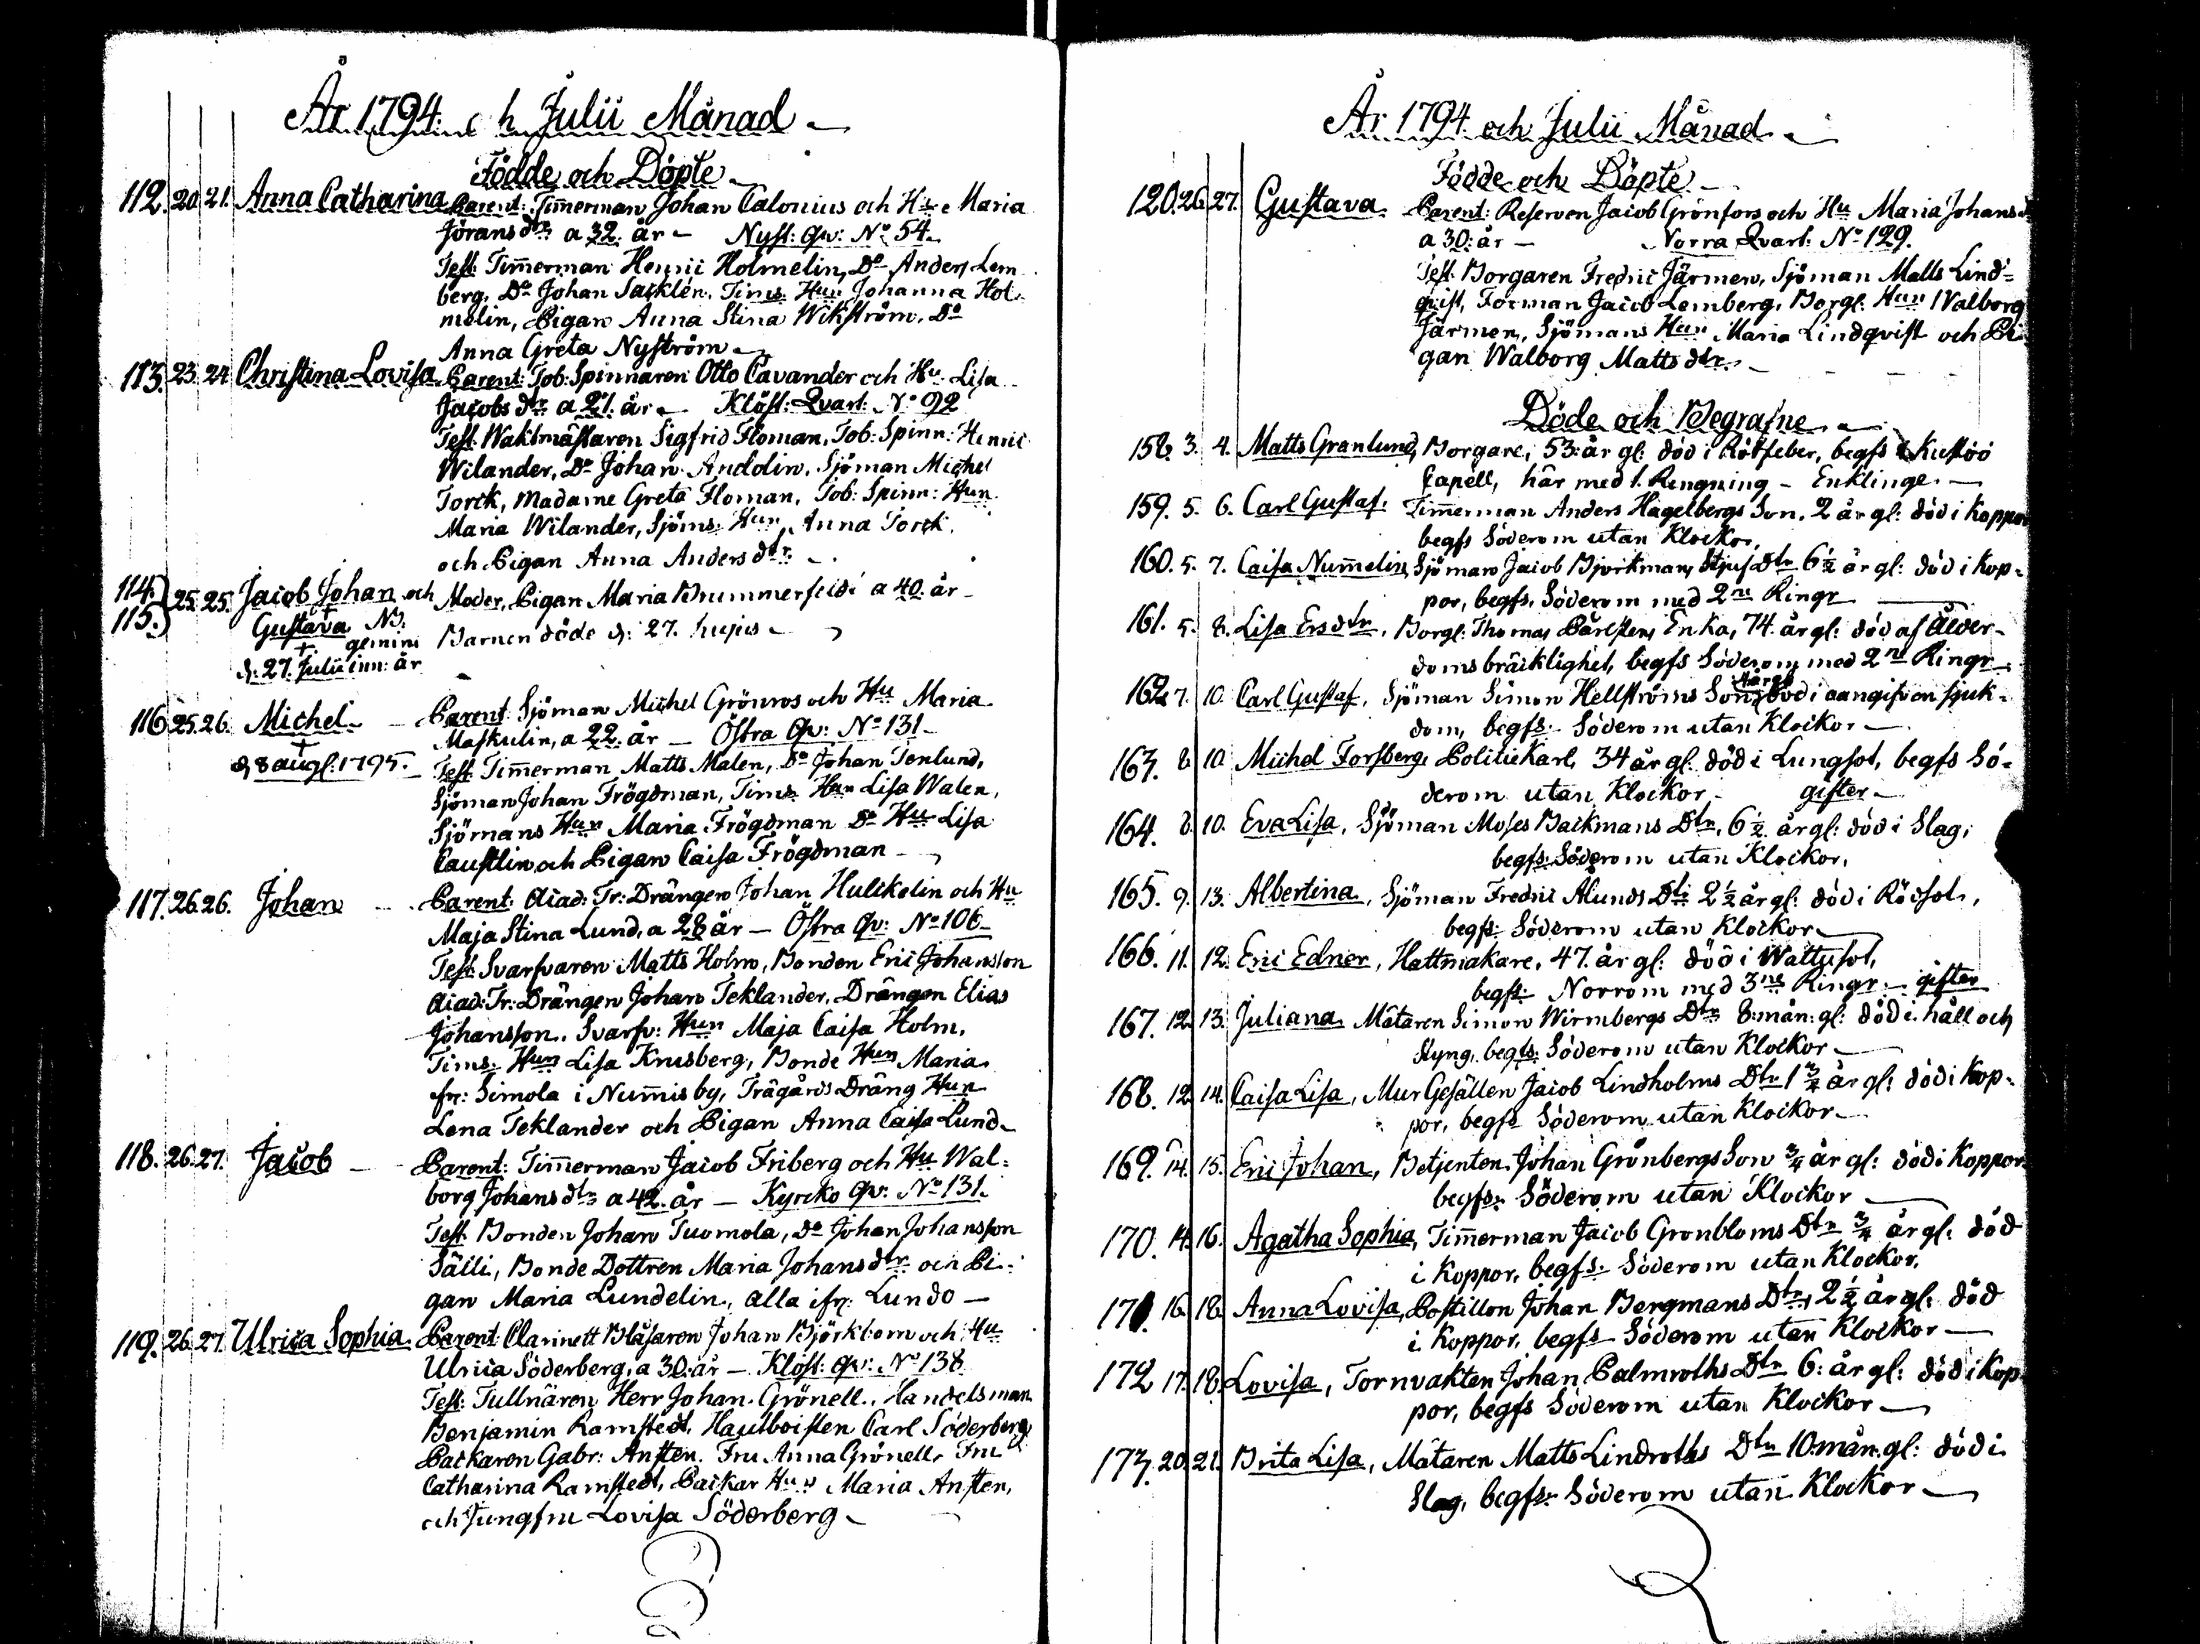 År 1794 och Julii Månad
Födde och Döpte
112. 20. 21. Anna Catharina Parent: Timmerman Johan Calonius och Hu: Maria
Jörans dtr a 32. år – Nyst: Qv: No 54.
Test: Timmerman Henric Holmelin, Do Anders Lem
berg, Do Johan Sacklén, Tims Hun Johanna Hol-
melin, Pigan Anna Stina Wikström, Do
Anna Greta Nyström
113. 23. 24 Christina Lovisa Parent: Tob: Spinnaren Otto Cavander och Hu Lisa
Jacobs dtr a 21. år – Klöst: Qvart: No 92
Test: Waktmästaren Sigfrid Floman, Tob: Spinn: Henric
Wilander, Do Johan Andolin, Sjöman Michel
Torck, Madame Greta Floman, Tob: Spinn: Hun
Maria Wilander, Sjöms: Hun Anna Torck
och Pigan Anna Anders dtr
114. 25. 25. Jacob Johan och Moder, Pigan Maria Brummerfeldt a 40. år
115. Gustava NB. gemini Barnen döde d: 27. hujus
d: 27. Julii inn: år
116. 25. 26. Michel Parent: Sjöman Michel Grönros och Hu Maria
Maskulin, a 22. år – Östra Qv: No 131
d. 8 aug: 1795. Test: Timmerman Matts Malen, Do Johan Tenlund,
Sjöman Johan Frögdman, Tims Hun Lisa Walen,
Sjömans Hun Maria Frögdman Do Hu Lisa
Caustlin och Pigan Caisa Frögdman
117. 26. 26. Johan Parent: Acad: Tr: Drängen Johan Hulckelin och Hu
Maja Stina Lund, a 28 år – Östra Qv: No 106
Test: Svarfvaren Matts Holm, Bonden Eric Johansson
Acad: Tr: Drängen Johan Teklander, Drängen Elias
Johansson, Svarfv: Hun Maja Caisa Holm,
Tims: Hun Lisa Knusberg, Bonde Hun Maria
fr: Simola i Nummis by, Trägårds Dräng Hun
Lena Teklander och Pigan Anna Caisa Lund
118. 26. 27. Jacob Parent: Timmerman Jacob Friberg och Hu Wal-
borg Johans dtr a 42. år – Kyrcko Qv: No 131.
Test: Bonden Johan Tuomola, Do Johan Johansson
Sälli, Bonde Dottren Maria Johans dtr och Pi-
gan Maria Lundelin, alla ifr: Lundo
119. 26. 27. Ulrica Sophia Parent: Clarinett Blåsaren Johan Björkbom och Hu
Ulrica Söderberg, a 30. år – Klöst: Qv: No 138
Test: Tullnären Herr Johan Grönell, Handelsman
Benjamin Ramstedt, Hautboisten Carl Söderberg
Packaren Gabr: Ansten, Fru Anna Grönell, Fru
Catharina Ramstedt, Packar Hun Maria Ansten,
och Jungfru Lovisa Söderberg
År 1794 och Julii Månad
Födde och Döpte
120. 26. 27. Gustava Parent: Reserven Jacob Grönfors och Hu Maria Johans d
a 30: år – Norra Qvart: No 129.
Test: Borgaren Fredric Järmen, Sjöman Matts Lind-
qvist, Forman Jacob Lemberg, Borgl: Hun Walborg
Järmen, Sjömans Hun Maria Lindqvist och Pi
gan Walborg Matts dtr
Döde och Begrafne
158. 3. 4. Matts Granlund, Borgare, 53: år gl: död i Rötfeber, begfs i Kustöö
Capell, här med 1. Ringning – Enklinge
159. 5. 6. Carl Gustaf. Timmerman Anders Hagelbergs Son, 2 år gl: död i Koppor
begfs Söderom utan Klockor.
160. 5. 7. Caisa Nummelin, Sjöman Jacob Bjorkmans Stjuf Dtr 6 1/2 år gl: död i Kop-
por, begfs. Söderom med 2ne Ringr
161. 5. 8. Lisa Ersdtr. Borgl: Thomas Pärlstens Enka, 74. år gl: död af Ålder-
domsbräcklighet, begfs Söderom med 2ne Ringr
162. 7. 10. Carl Gustaf, Sjöman Simon Hellströms Son, död i oangifven sjuk-
dom, begfs: Söderom utan Klockor
163. 8. 10. Michel Forsberg, PolitieKarl, 34 år gl: död i Lungsot, begfs Sö-
derom utan Klockor – gifter
164. 8. 10. Eva Lisa, Sjöman Moses Backmans Dtr, 6 1/2 år gl: död i Slag,
begfs: Söderom utan Klockor,
165. 9. 13. Albertina, Sjöman Fredric Alunds Dtr 2 1/2 år gl: död i Rödsot,
begfs: Söderom utan Klockor
166. 11. 12. Eric Edner, Hattmakare, 47. år gl: död i Wattusot,
begfs: Norrom med 3ne Ringr – gifter
167. 12. 13. Juliana Mätaren Simon Wirmbergs Dtr 8: mån: gl: död i håll och
styng, begfs: Söderom utan Klockor
168. 12. 14. Caisa Lisa, Mur Gesällen Jacob Lindholms Dtr 1 3/4 år gl: död i Kop-
por, begfs Söderom utan Klockor
169. 14. 15. Eric Johan, Betjenten Johan Grönbergs Son 3/4 år gl: död i Koppor
begfs: Söderom utan Klockor
170. 14. 16. Agatha Sophia, Timmerman Jacob Gronbloms Dtr 3/4 år gl: död
i Koppor, begfs: Söderom utan Klockor,
171. 16. 18. Anna Lovisa, Postillon Johan Bergmans Dtr, 2 1/2 år gl: död
i Koppor, begfs Söderom utan Klockor
172 17. 18. Lovisa, Tornvakten Johan Palmroths Dtr 6: år gl: död i Kop
por, begfs Söderom utan Klockor
173. 20. 21. Brita Lisa, Mätaren Matts Lindroths Dtr 10: mån: gl: död i
Slag, begfs: Söderom utan Klockor